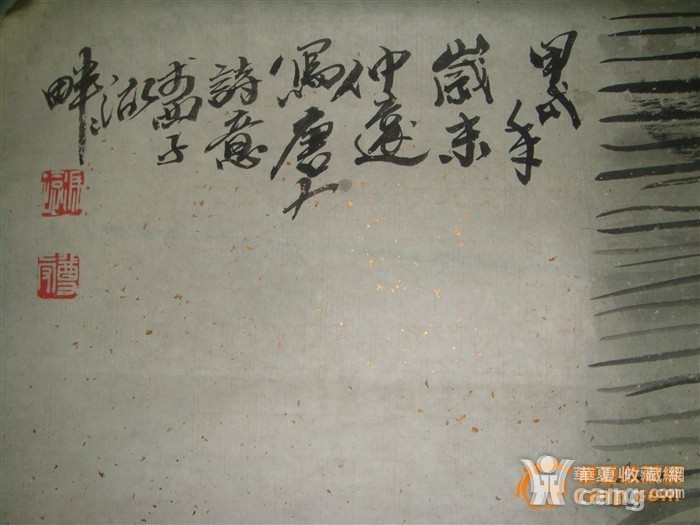 甲戌年
歲末
仲
寫唐人
詩意
於西子
湖
畔
華夏收藏網
cang.com